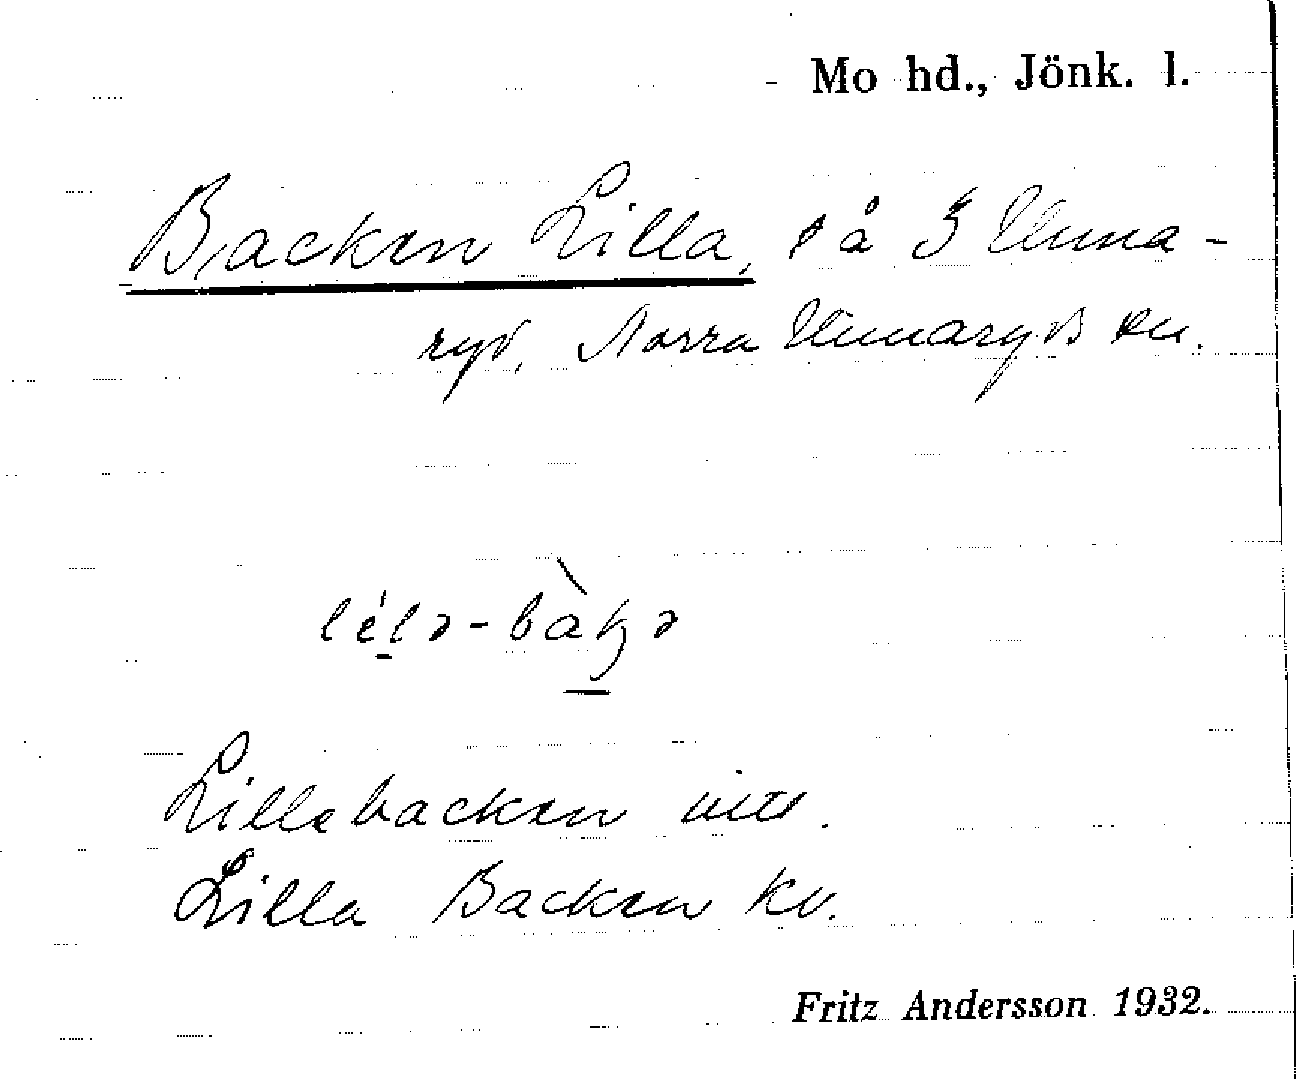 Mo hd., Jönk. l.
Backen Lilla, på 3 Unna-
ryd, Norra Unnaryds sn.
Lillebacken uttl.
Lilla Backen kv.
Fritz Andersson 1932.